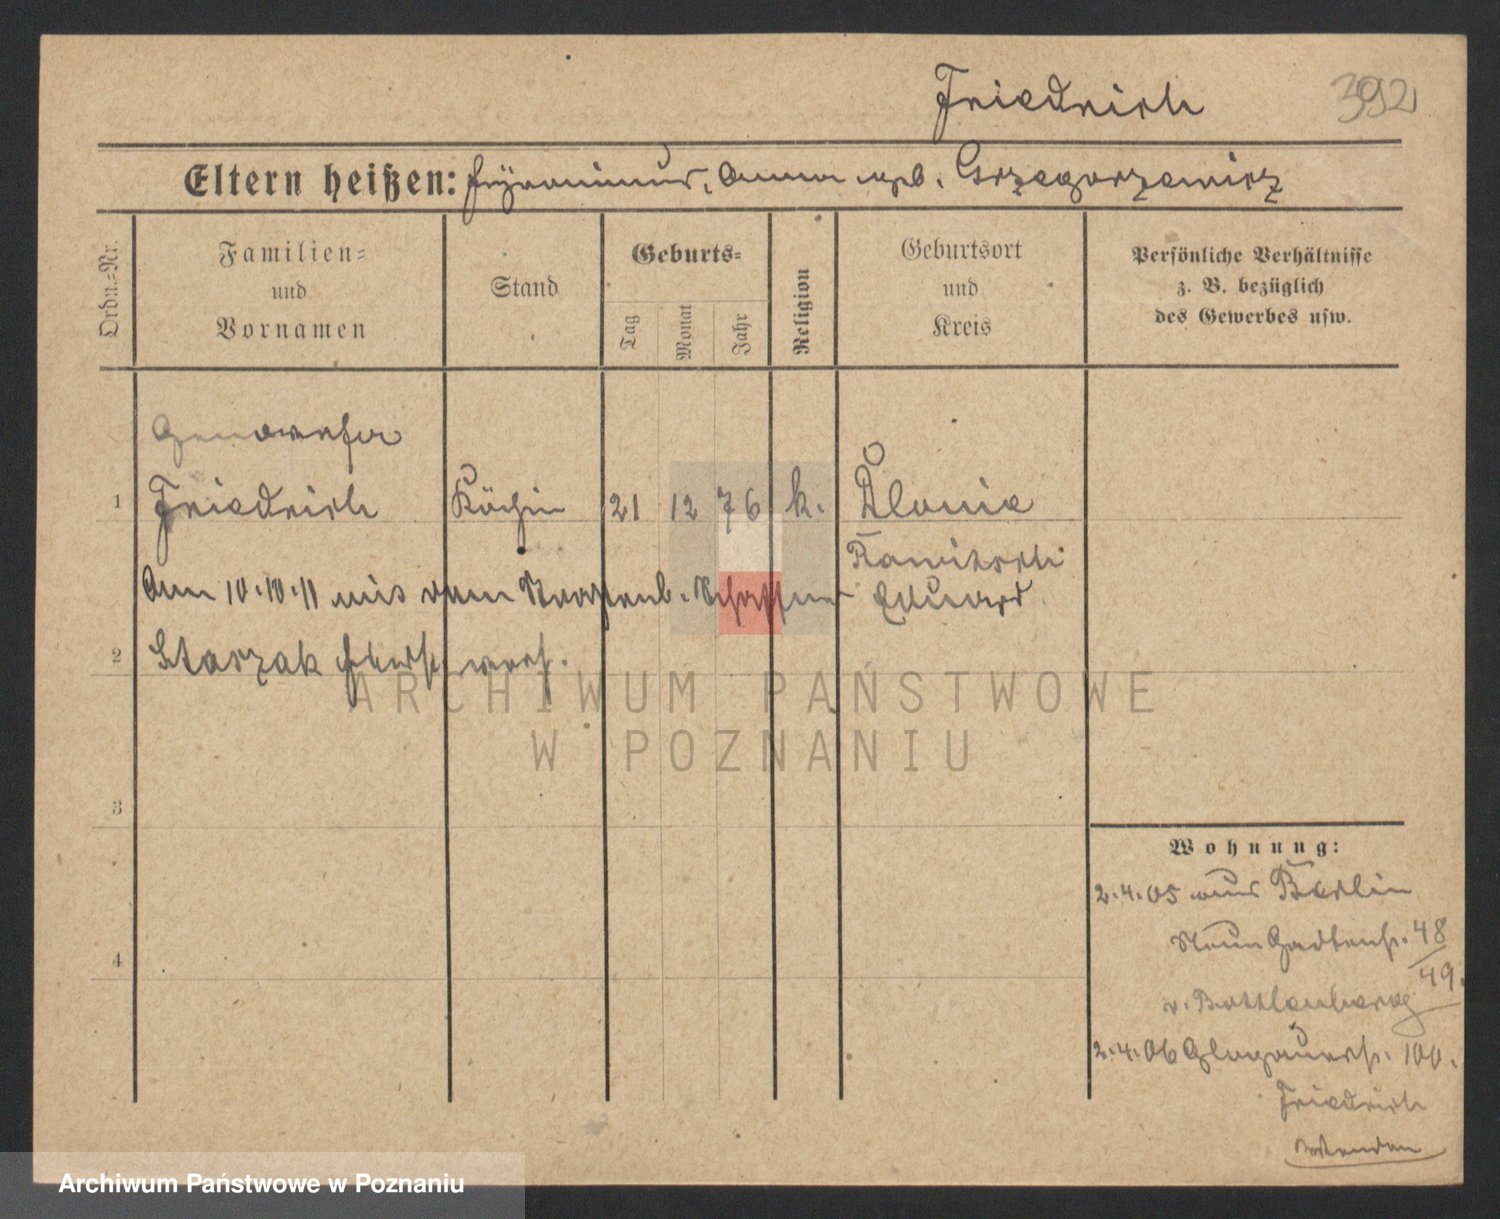 Friedrich
392
Eltern heißen: Hyronimus, Anna geb. Grzegorzewicz
Ordn.-Nr.
Familien-
und
Vornamen
Stand
Geburts-
Tag
Monat
Jahr
Religion
Geburtsort
und
Kreis
Persönliche Verhältnisse
z. B. bezüglich
des Gewerbes usw.
Genowefa
1 Friedrich Köchin 21 12 76 k. Dlonie
Rawitsch
Am 10.10.11 mit dem Schaffner Eduard
2 Staszak verh.
ARCHIWUM PAŃSTWOWE
W POZNANIU
3
4
Wohnung:
2.4.05 aus Berlin
Neue Gartenstr. 48/49.
2.4.06 Glogauerstr. 100.
Friedrich
Archiwum Państwowe w Poznaniu